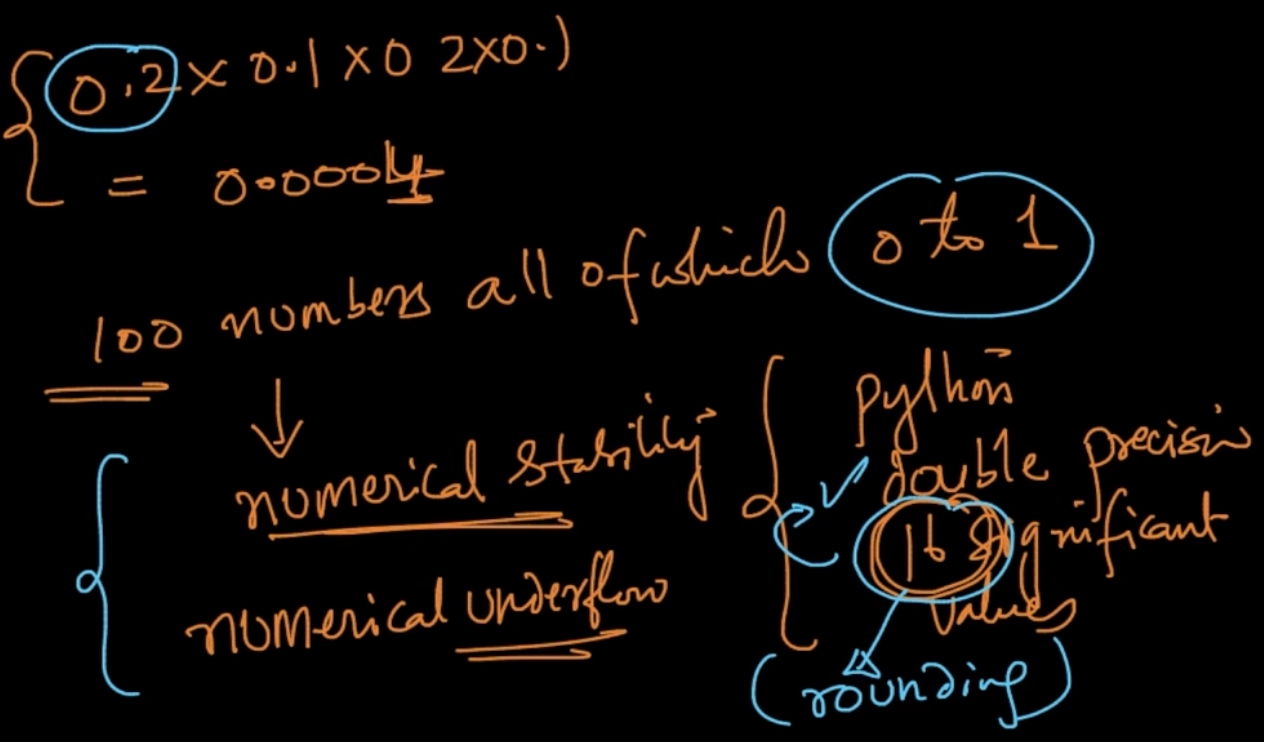 0.2 × 0.1 × 0 2 × 0.1
= 0.0004
100 numbers all of which 0 to 1
numerical stability
numerical underflow
python
double precision
16 significant
values
(rounding)